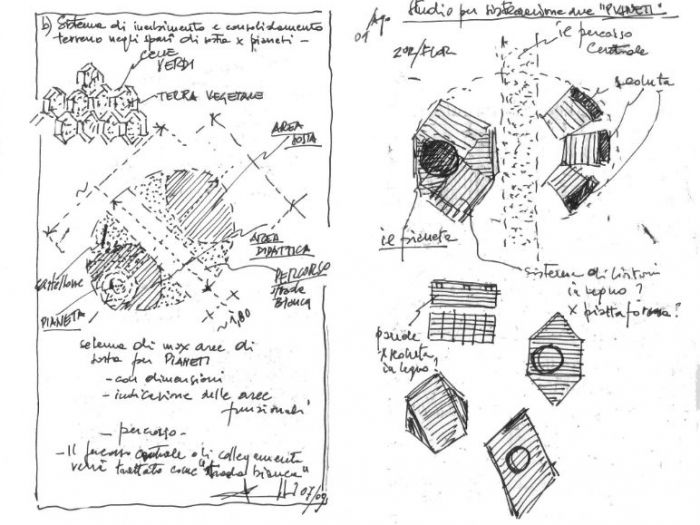 b) Sistema di inerbimento e consolidamento
terreno negli spazi di sosta x pianeti -
CELLE
VERDI
TERRA VEGETALE
AREA
SOSTA
AREA
DIDATTICA
PERCORSO
strada
Bianca
~1,80
cartellone
PIANETA
schema di max aree di
sosta per PIANETI
- con dimensioni
- indicazione delle aree
funzionali
- percorso -
- Il percorso centrale o di collegamento
verrà trattato come "strada bianca"
07/09
01/Ago
Studio per sistemazione aree "PIANETI"
il percorso
centrale
seduta
il pianeta
sistema di listoni
in legno?
x piattaforma?
x seduta
in legno?